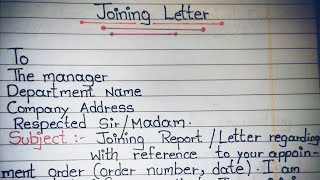 Joining Letter
To
The manager
Department Name
Company Address
Respected Sir/Madam.
Subject :- Joining Report/Letter regarding
With reference to your appoin-
ment order (order number, date). I am